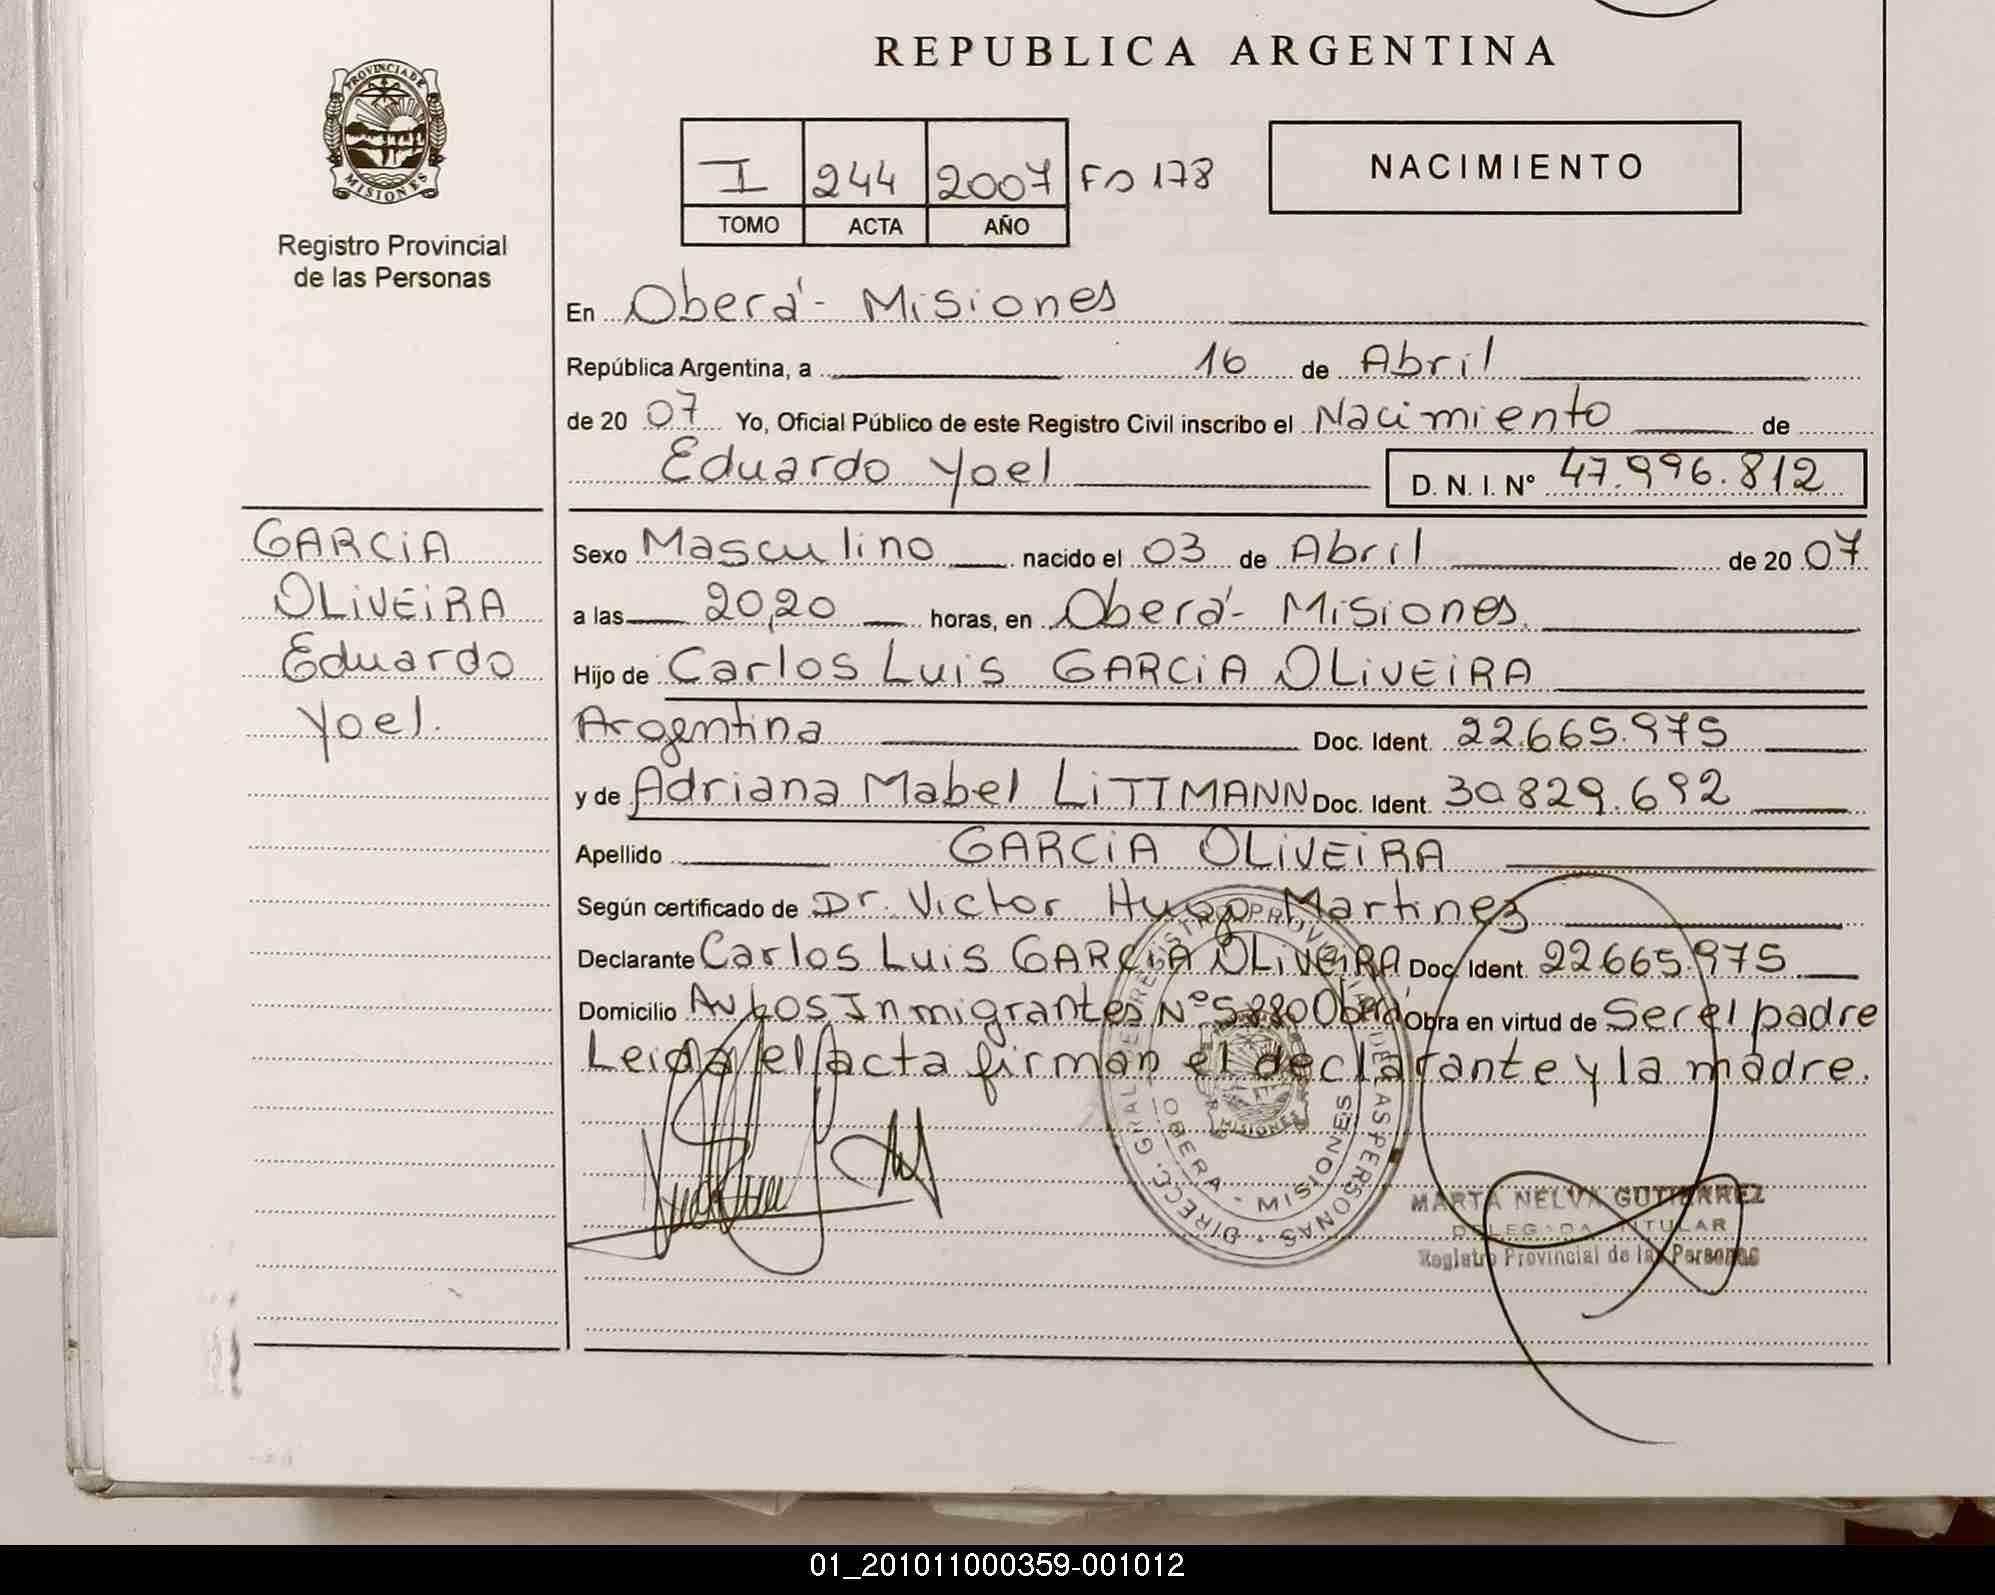 REPUBLICA ARGENTINA
PROVINCIA DE MISIONES
Registro Provincial
de las Personas
I 244 2007 Fo 178
TOMO ACTA AÑO
NACIMIENTO
En Oberá - Misiones
República Argentina, a 16 de Abril
de 20 07 Yo, Oficial Público de este Registro Civil inscribo el Nacimiento de
Eduardo Yoel D. N. I. N° 47.996.812
GARCiA
OLiVEiRA
Eduardo
Yoel.
Sexo Masculino nacido el 03 de Abril de 20 07
a las 20,20 horas, en Oberá - Misiones.
Hijo de Carlos Luis GARCiA OLiVEiRA
Argentina Doc. Ident. 22.665.975
y de Adriana Mabel LiTTMANN Doc. Ident. 30.829.692
Apellido GARCiA OLiVEiRA
Según certificado de Dr. Victor Hugo Martinez
Declarante Carlos Luis GARCiA OLiVEiRA Doc. Ident. 22665.975
Domicilio Av. Los Inmigrantes N° 5880 Oberá Obra en virtud de Ser el padre
Leida el acta firman el declarante y la madre.
DIRECC. GRAL. DE REGISTRO PROVINCIAL DE LAS PERSONAS
OBERA - MISIONES
MISIONES
MARTA NELVA GUTIERREZ
DELEGADA TITULAR
Registro Provincial de las Personas
01_201011000359-001012